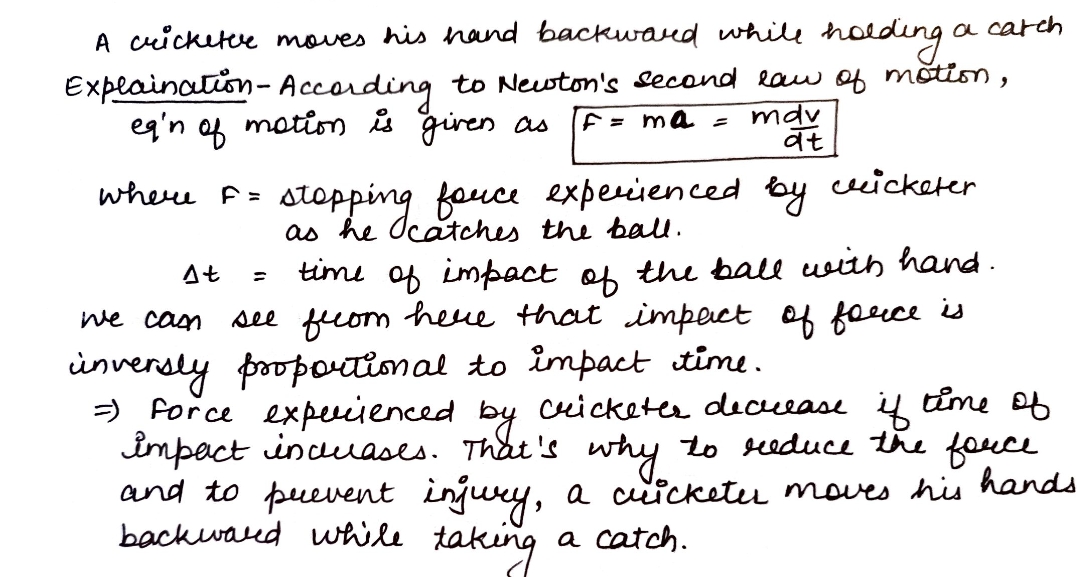 A cricketer moves his hand backward while holding a catch
Explaination - According to Newton's second law of motion,
eq'n of motion is given as F = ma = mdv/dt
where F = stopping force experienced by cricketer
as he catches the ball.
Δt = time of impact of the ball with hand.
we can see from here that impact of force is
inversly proportional to impact time.
⇒ Force experienced by cricketer decrease if time of
impact increases. That's why to reduce the force
and to prevent injury, a cricketer moves his hands
backward while taking a catch.